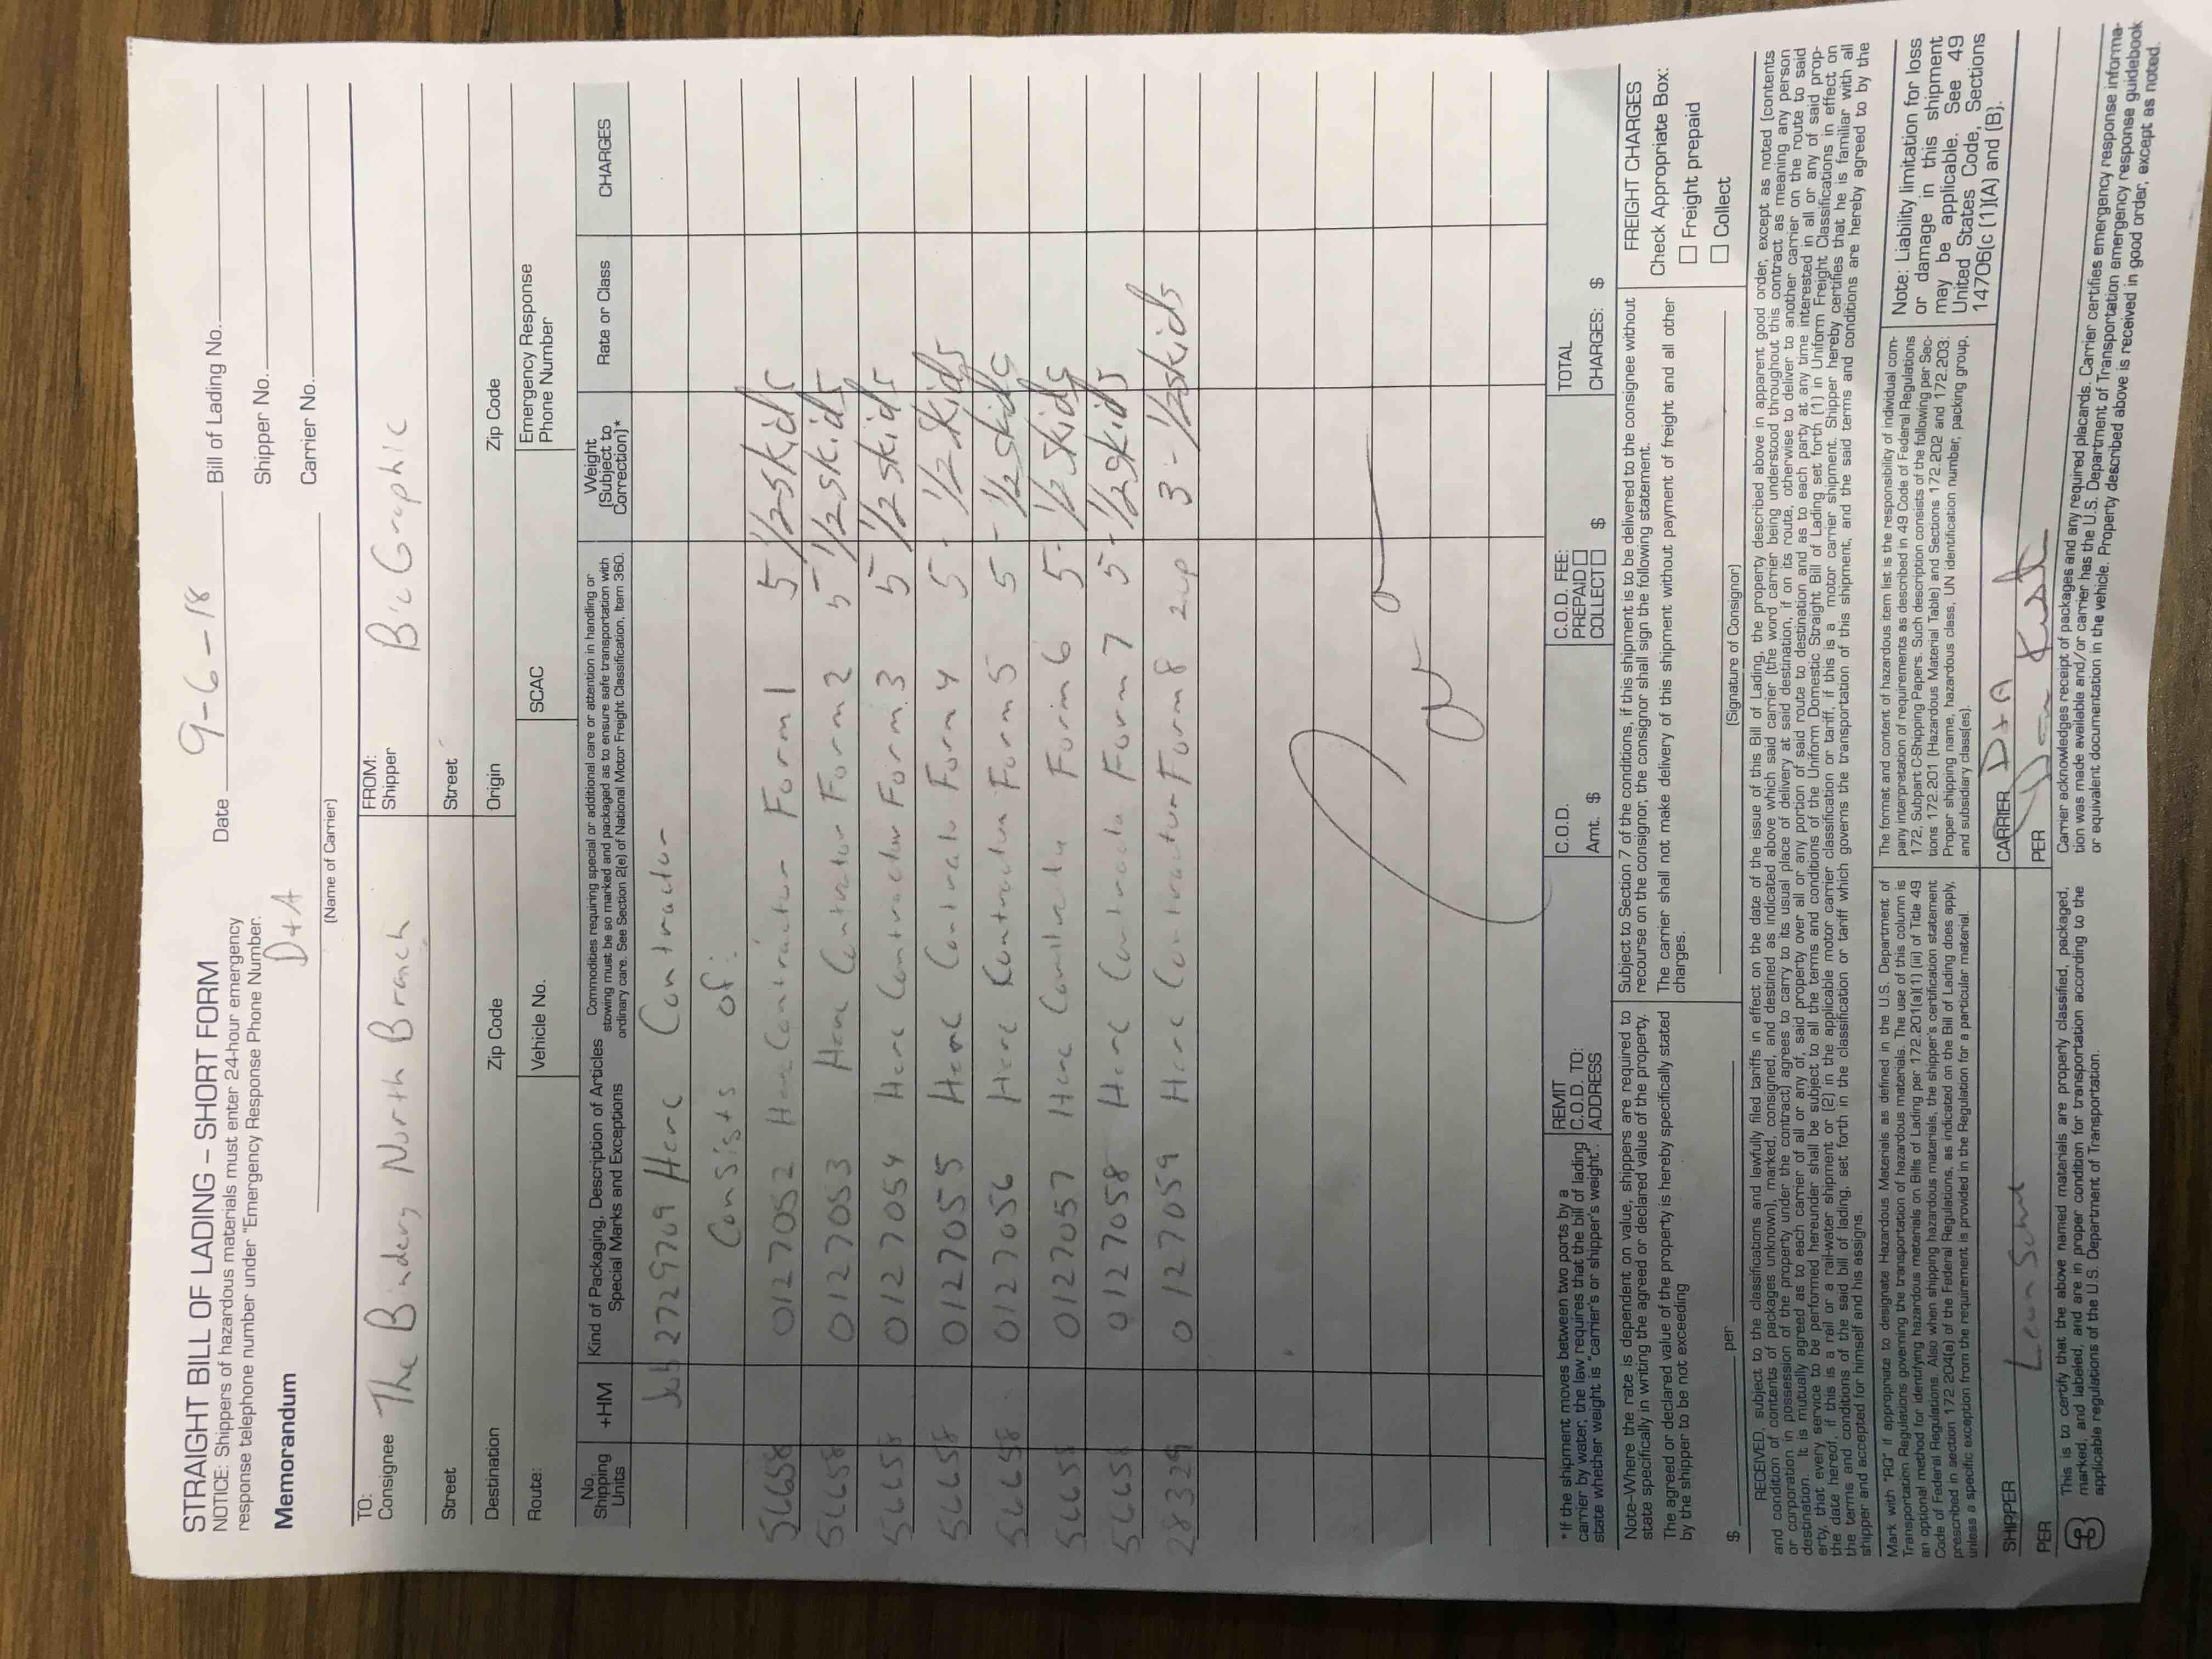 STRAIGHT BILL OF LADING – SHORT FORM
NOTICE: Shippers of hazardous materials must enter 24-hour emergency
response telephone number under "Emergency Response Phone Number.
Memorandum
D+A
(Name of Carrier)
Date 9-6-18
Bill of Lading No.
Shipper No.
Carrier No.
TO:
Consignee The Bindery North Branch
FROM:
Shipper Bic Graphic
Street
Street
Destination
Zip Code
Origin
Zip Code
Route:
Vehicle No.
SCAC
Emergency Response
Phone Number
No.
Shipping
Units
+HM
Kind of Packaging, Description of Articles
Special Marks and Exceptions
Commodities requiring special or additional care or attention in handling or
stowing must be so marked and packaged as to ensure safe transportation with
ordinary care. See Section 2(e) of National Motor Freight Classification, Item 360.
Weight
(Subject to
Correction)*
Rate or Class
CHARGES
Job 2729709 Herc Contractor
Consists of:
56658 0127052 Herc Contractor Form 1 5 1/2 skids
56658 0127053 Herc Contractor Form 2 5 1/2 skids
56658 0127054 Herc Contractor Form 3 5 1/2 skids
56658 0127055 Herc Contractor Form 4 5- 1/2 skids
56658 0127056 Herc Contractor Form 5 5- 1/2 skids
56658 0127057 Herc Contractor Form 6 5- 1/2 skids
56658 0127058 Herc Contractor Form 7 5- 1/2 skids
28329 0127059 Herc Contractor Form 8 2up 3- 1/2 skids
*If the shipment moves between two ports by a
carrier by water, the law requires that the bill of lading
state whether weight is "carrier's or shipper's weight".
REMIT
C.O.D. TO:
ADDRESS
C.O.D.
Amt. $
C.O.D. FEE:
PREPAID
COLLECT $
TOTAL
CHARGES: $
Note–Where the rate is dependent on value, shippers are required to
state specifically in writing the agreed or declared value of the property.
The agreed or declared value of the property is hereby specifically stated
by the shipper to be not exceeding
$ per
Subject to Section 7 of the conditions, if this shipment is to be delivered to the consignee without
recourse on the consignor, the consignor shall sign the following statement.
The carrier shall not make delivery of this shipment without payment of freight and all other
charges.
(Signature of Consignor)
FREIGHT CHARGES
Check Appropriate Box:
Freight prepaid
Collect
RECEIVED, subject to the classifications and lawfully filed tariffs in effect on the date of the issue of this Bill of Lading, the property described above in apparent good order, except as noted (contents
and condition of contents of packages unknown), marked, consigned, and destined as indicated above which said carrier (the word carrier being understood throughout this contract as meaning any person
or corporation in possession of the property under the contract) agrees to carry to its usual place of delivery at said destination, if on its route, otherwise to deliver to another carrier on the route to said
destination. It is mutually agreed as to each carrier of all or any of, said property over all or any portion of said route to destination and as to each party at any time interested in all or any of said prop-
erty, that every service to be performed hereunder shall be subject to all the terms and conditions of the Uniform Domestic Straight Bill of Lading set forth (1) in Uniform Freight Classifications in effect on
the date hereof, if this is a rail or a rail-water shipment or (2) in the applicable motor carrier classification or tariff, if this is a motor carrier shipment. Shipper hereby certifies that he is familiar with all
the terms and conditions of the said bill of lading, set forth in the classification or tariff which governs the transportation of this shipment, and the said terms and conditions are hereby agreed to by the
shipper and accepted for himself and his assigns.
Mark with "RQ" if appropriate to designate Hazardous Materials as defined in the U.S. Department of
Transportation Regulations governing the transportation of hazardous materials. The use of this column is
an optional method for identifying hazardous materials on Bills of Lading per 172.201(a)(1) (iii) of Title 49
Code of Federal Regulations. Also when shipping hazardous materials, the shipper's certification statement
prescribed in section 172.204(a) of the Federal Regulations, as indicated on the Bill of Lading does apply,
unless a specific exception from the requirement is provided in the Regulation for a particular material.
The format and content of hazardous item list is the responsibility of individual com-
pany interpretation of requirements as described in 49 Code of Federal Regulations
172, Subpart C-Shipping Papers. Such description consists of the following per Sec-
tions 172.201 (Hazardous Material Table) and Sections 172.202 and 172.203:
Proper shipping name, hazardous class, UN identification number, packing group,
and subsidiary class(es).
Note: Liability limitation for loss
or damage in this shipment
may be applicable. See 49
United States Code, Sections
14706(c (1)(A) and (B).
SHIPPER
CARRIER D+A
PER
PER
This is to certify that the above named materials are properly classified, packaged,
marked, and labeled, and are in proper condition for transportation according to the
applicable regulations of the U.S. Department of Transportation.
Carrier acknowledges receipt of packages and any required placards. Carrier certifies emergency response informa-
tion was made available and/or carrier has the U.S. Department of Transportation emergency response guidebook
or equivalent documentation in the vehicle. Property described above is received in good order, except as noted.